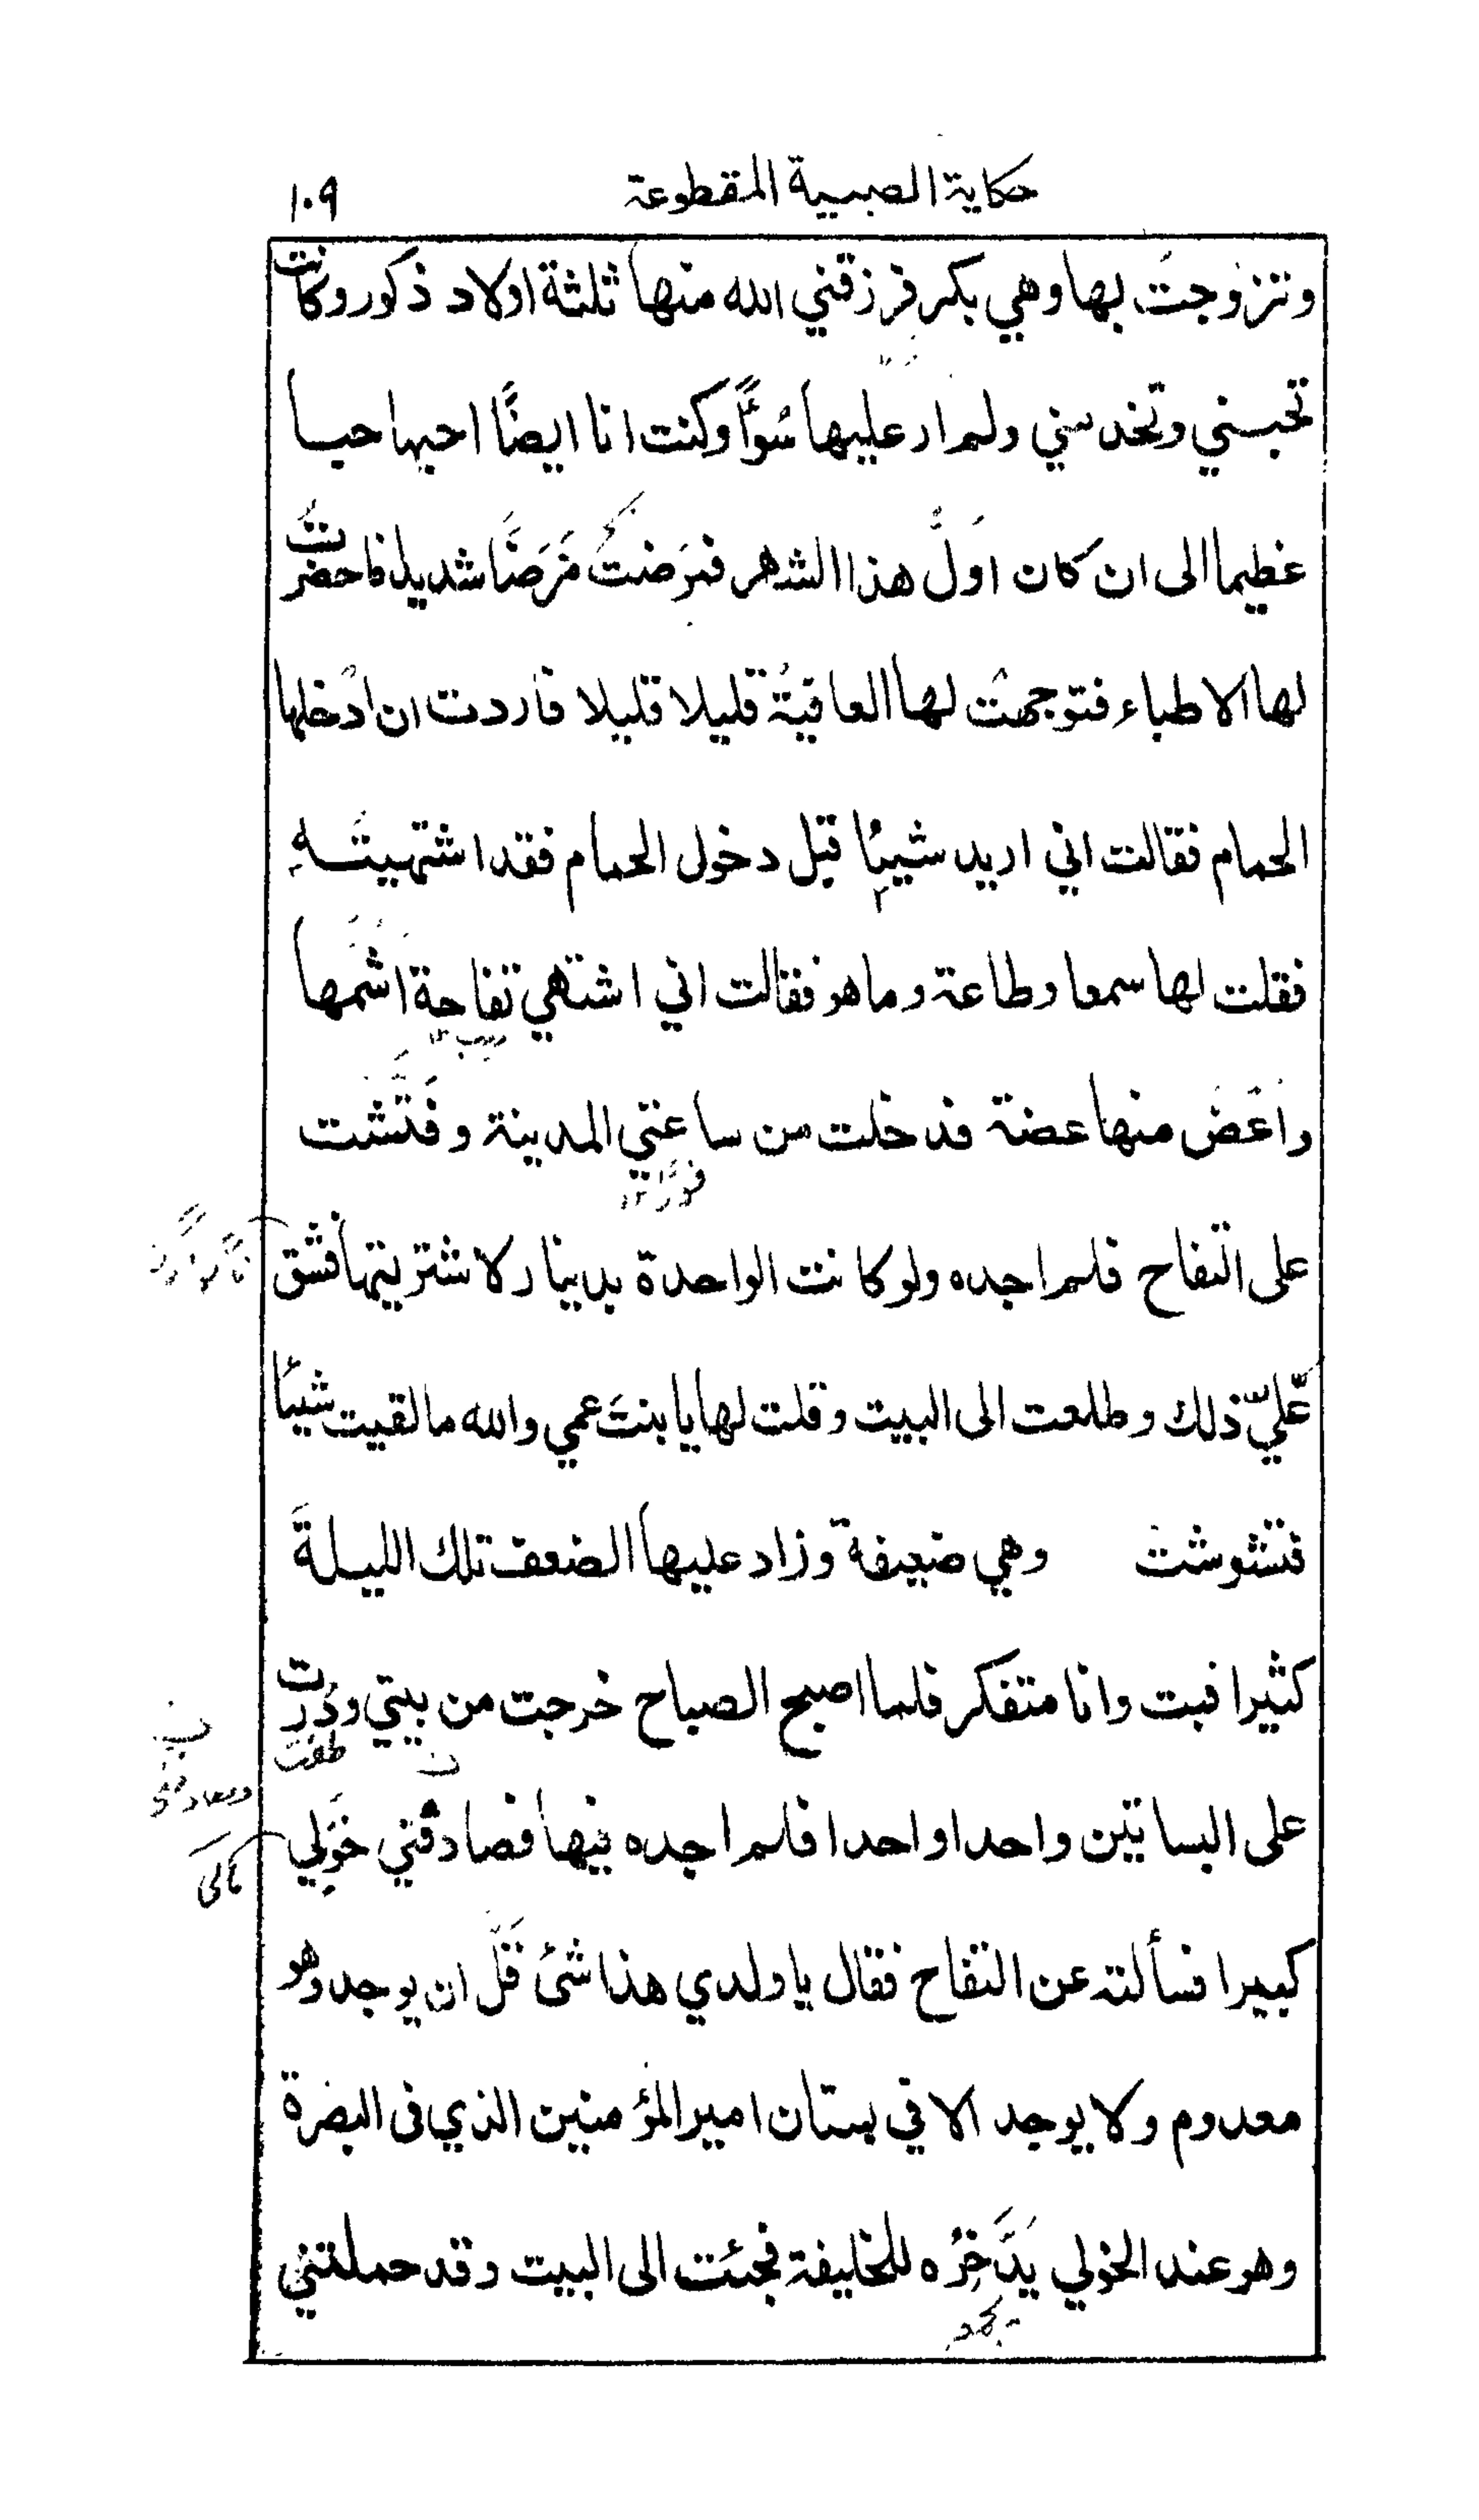 حكاية الصبية المقطوعة ١٠٩
وتزوجتُ بها وهي بكر فرزقني الله منها ثلثة اولاد ذكور وكانت
تحبني وتخدمني ولم ار عليها سُوأً وكنت انا ايضًا احبها حبا
عظيما الى ان كان اوَلُ هذا الشهر فمَرَضتْ مَرَضًا شديدا فاحضرتُ
لها الاطباء فتوجهتْ لها العافيةُ قليلا قليلا فاردت ان ادُخلها
الحمام فقالت اني اريد شيئًا قبل دخول الحمام فقد اشتهيتُه
فقلت لها سمعا وطاعة وما هو فقالت اني اشتهي تفاحة اشمُها
واعَضُ منها عضة فدخلت من ساعتي المدينة وفَتَّشت
على التفاح فلم اجده ولو كانت الواحدة بدينار لاشتريتها فشق
عَليّ ذلك وطلعت الى البيت وقلت لها يا بنتَ عمي والله ما لقيت شيئًا
فتشوشت وهي ضعيفة وزاد عليها الضعف تلك الليلةَ
كثيرا فبت وانا متفكر فلما اصبح الصباح خرجت من بيتي ودُرت
على البساتين واحدا واحدا فلم اجده فيها فصادفني خَوَلي
كبيرا فسألته عن التفاح فقال يا ولدي هذا شئ قَلَّ ان يوجد وهو
معدوم ولا يوجد الا في بستان امير المؤمنين الذي في البصرة
وهو عند الخولي يَدَّخِرُه للخليفة فجئت الى البيت وقد حملتني